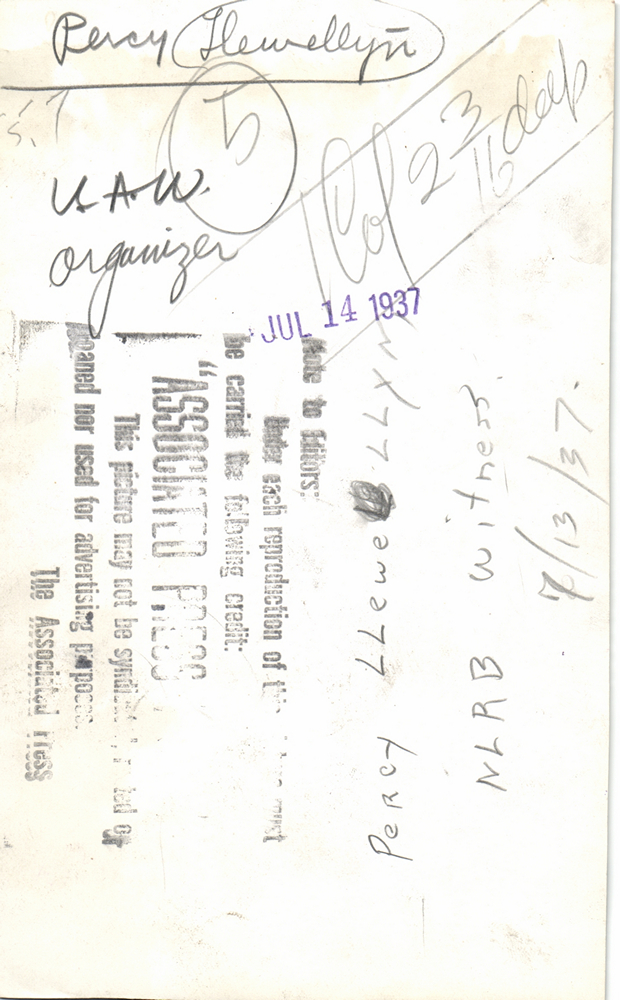 Percy Llewellyn
5
U.A.W.
Organizer
1 Col 2 3/16 deep
JUL 14 1937
Note to Editors:
Under each reproduction of this must
be carried the following credit:
"ASSOCIATED PRESS
This picture may not be syndicated or
loaned nor used for advertising purposes.
The Associated Press
PERCY LLEWELLYN
NLRB Witness
7/13/37.